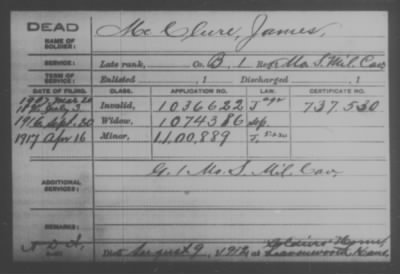 DEAD
NAME OF SOLDIER: Mc Clure, James,
SERVICE: Late rank, Co. B, 1 Reg't Mo. S. Mil. Cav
TERM OF SERVICE: Enlisted , 1 Discharged , 1
DATE OF FILING. CLASS. APPLICATION NO. LAW. CERTIFICATE NO.
1907 Mar 20
July 3 Invalid, 1036622 J age 737.530
1916 Sept. 20 Widow, 1074386
1917 Apr 16 Minor, 1100,889
ADDITIONAL SERVICES: G. 1 Mo. S. Mil. Cav
REMARKS: Soldiers Home
Died August 9, 1912, at Leavenworth, Kans.